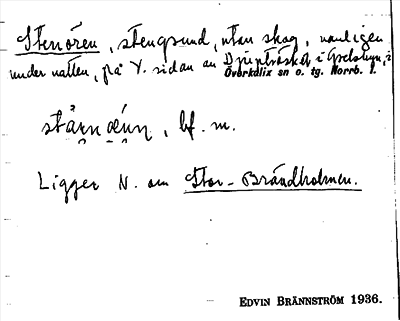 Stenören, stengrund, utan skog, vanligen
under vatten, på V. sidan av Djupträsket i
Överkalix sn o. tg. Norrb. l.
stärn , bf. m.
Ligger N. om Stor-Brändholmen.
EDVIN BRÄNNSTRÖM 1936.